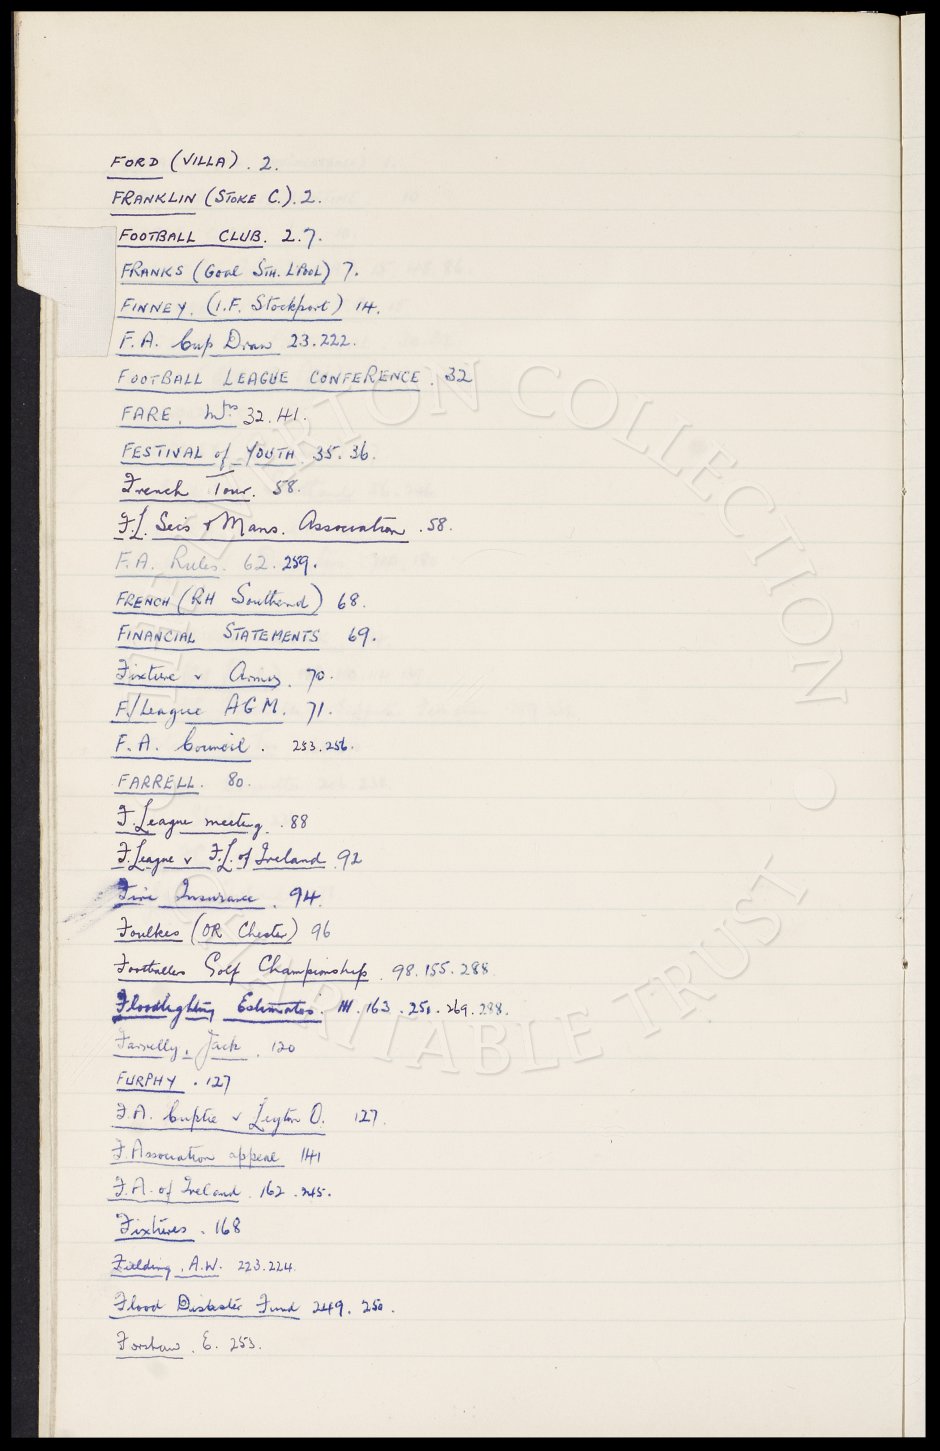 FORD (VILLA). 2.
FRANKLIN (STOKE C.). 2.
FOOTBALL CLUB. 2.7.
FRANKS (Goal STH. L'POOL) 7.
FINNEY. (I.F. Stockport) 14.
F.A. Cup Draw 23.222.
FOOTBALL LEAGUE CONFERENCE. 32
FARE, Mrs 32.41.
FESTIVAL of YOUTH 35.36.
French Tour. 58.
F.L. Secs & Mans. Association. 58.
F.A. Rules. 62. 259.
FRENCH (RH Southend) 68.
FINANCIAL STATEMENTS 69.
Fixture v Army. 70.
F./League AGM. 71.
F.A. Council. 253.256.
FARRELL. 80.
F. League meeting. 88
F. League v F.L. of Ireland. 92
Fire Insurance. 94.
Foulkes (OR Chester) 96
Footballers Golf Championship. 98.155.288.
Floodlighting Estimates. 111. 163. 251. 269. 288.
Farrelly, Jack. 120
FURPHY. 127
F.A. Cuptie v Leyton O. 127.
F. Association appeal 141
F.A. of Ireland. 162. 245.
Fixtures. 168
Fielding, A.W. 223.224.
Flood Disaster Fund 249. 250.
Forshaw, E. 253.
THE EVERTON COLLECTION • CHARITABLE TRUST •